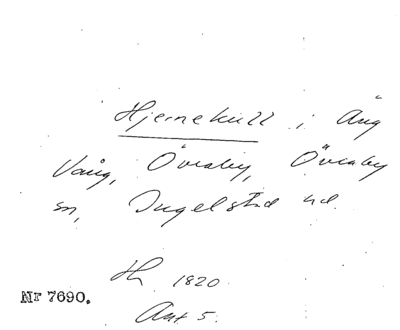 Hjernekull i Äng
Vång, Övraby, Övraby
sn, Ingelstad hd.
Hk 1820
Ant 5.
Nr 7690.